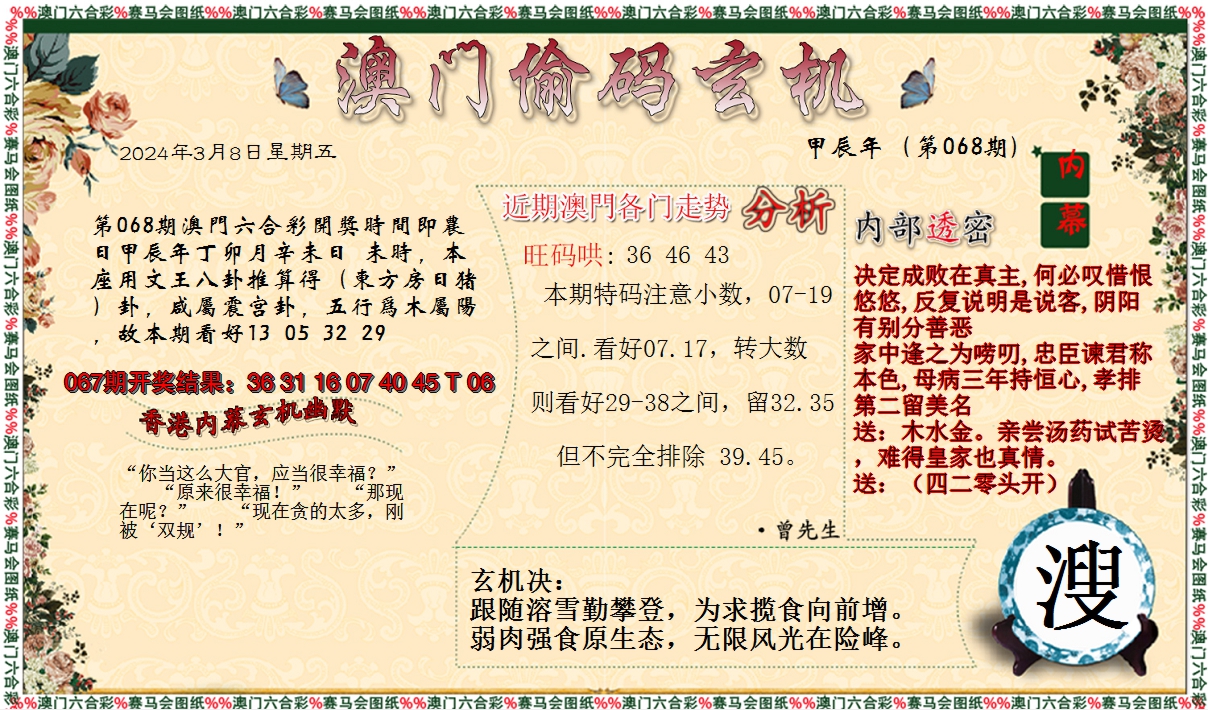 %%澳门六合彩%赛马会图纸%%澳门六合彩%赛马会图纸%%澳门六合彩%赛马会图纸%%澳门六合彩%赛马会图纸%%澳门六合彩%赛马会图纸%%澳门六合彩%赛马会图纸%%
澳门偷码玄机
2024年3月8日星期五
甲辰年（第068期）
第068期澳門六合彩開獎時間即農
日甲辰年丁卯月辛未日 未時，本
座用文王八卦推算得（東方房日猪
）卦，咸屬震宫卦，五行爲木屬陽
，故本期看好13 05 32 29
067期开奖结果：36 31 16 07 40 45 T 06
香港内幕玄机幽默
“你当这么大官，应当很幸福？”
“原来很幸福！” “那现
在呢？” “现在贪的太多，刚
被‘双规’！”
近期澳門各门走势 分析
旺码哄: 36 46 43
本期特码注意小数，07-19
之间.看好07.17，转大数
则看好29-38之间，留32.35
但不完全排除 39.45。
·曾先生
内幕
内部透密
决定成败在真主,何必叹惜恨
悠悠,反复说明是说客,阴阳
有别分善恶
家中逢之为唠叨,忠臣谏君称
本色,母病三年持恒心,孝排
第二留美名
送：木水金。亲尝汤药试苦烫
，难得皇家也真情。
送：（四二零头开）
玄机决：
跟随溶雪勤攀登，为求揽食向前增。
弱肉强食原生态，无限风光在险峰。
溲
%%澳门六合彩%赛马会图纸%%澳门六合彩%赛马会图纸%%澳门六合彩%赛马会图纸%%澳门六合彩%赛马会图纸%%澳门六合彩%赛马会图纸%%澳门六合彩%赛马会图纸%%